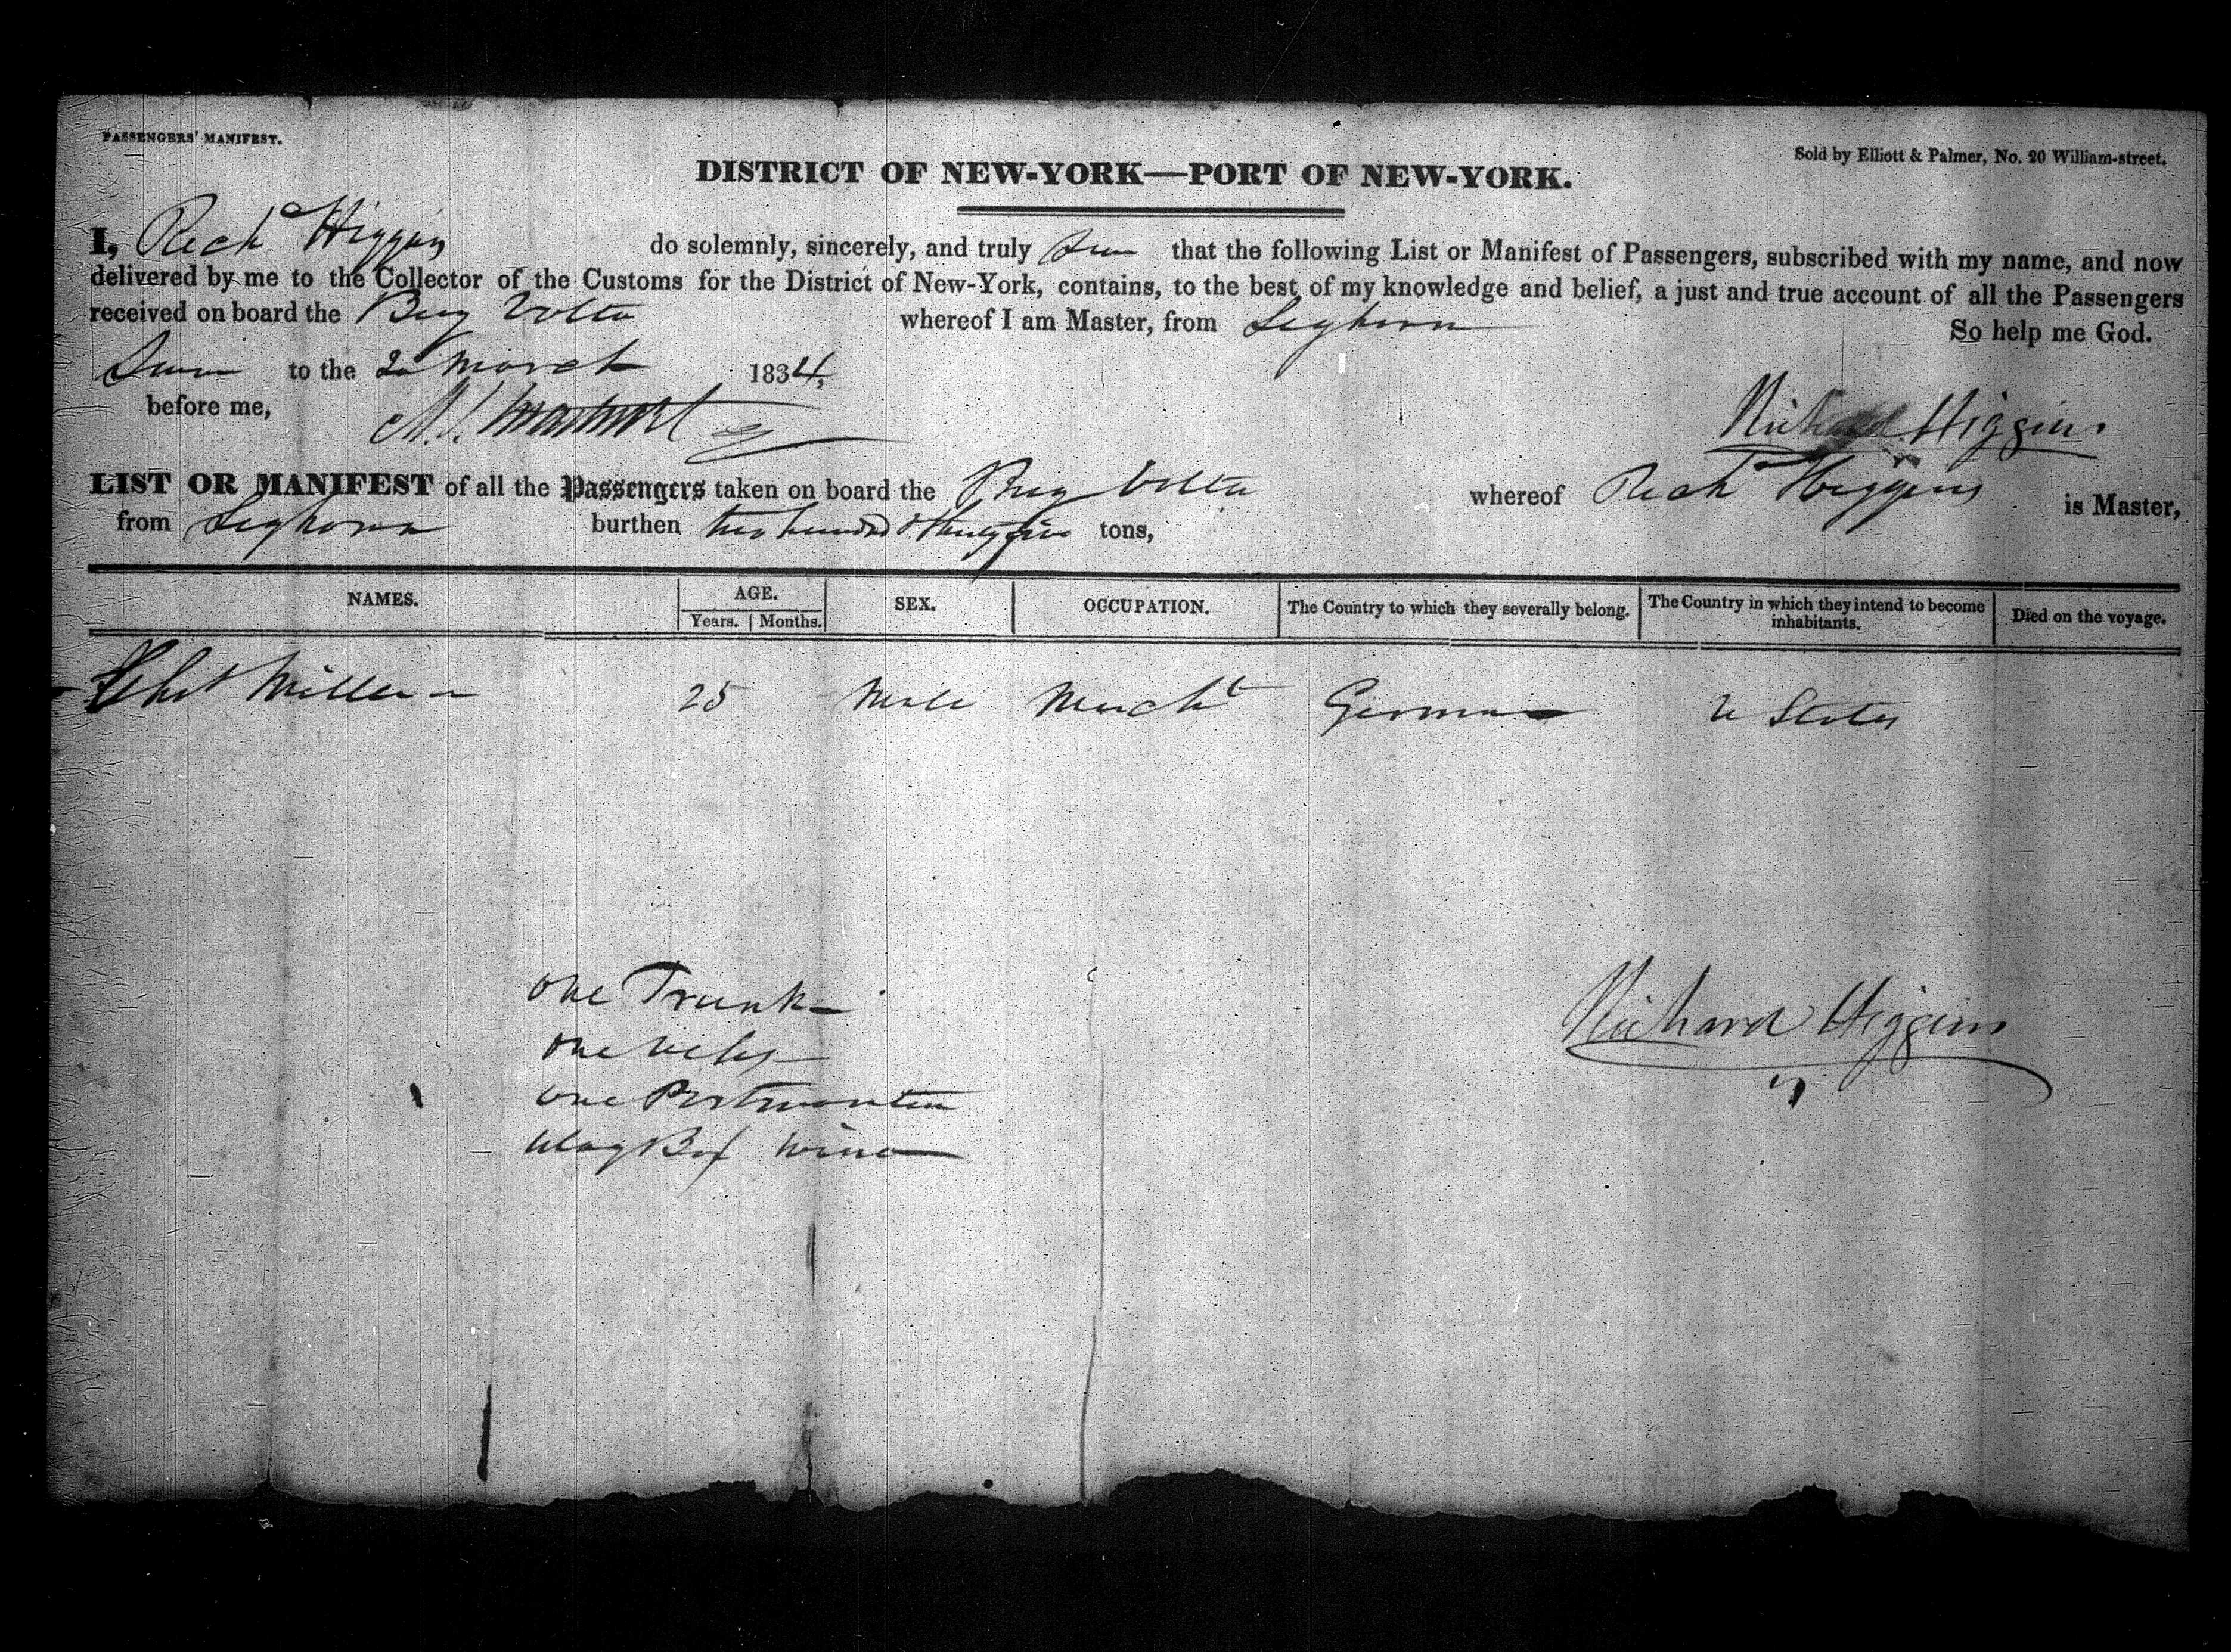 PASSENGERS' MANIFEST.
Sold by Elliott & Palmer, No. 20 William-street.
DISTRICT OF NEW-YORK—PORT OF NEW-YORK.
I, Richd Higgins do solemnly, sincerely, and truly that the following List or Manifest of Passengers, subscribed with my name, and now
delivered by me to the Collector of the Customs for the District of New-York, contains, to the best of my knowledge and belief, a just and true account of all the Passengers
received on board the Brig Volta whereof I am Master, from Leghorn
So help me God.
to the March 1834,
before me,
Richard Higgins
LIST OR MANIFEST of all the Passengers taken on board the Brig Volta whereof Richd Higgins is Master,
from Leghorn burthen two hundred & tons,
NAMES. AGE. SEX. OCCUPATION. The Country to which they severally belong. The Country in which they intend to become inhabitants. Died on the voyage.
Years. Months.
Miller 25 Male Mercht German U States
one Trunk
one
one Portmantau
Box Wine
Richard Higgins